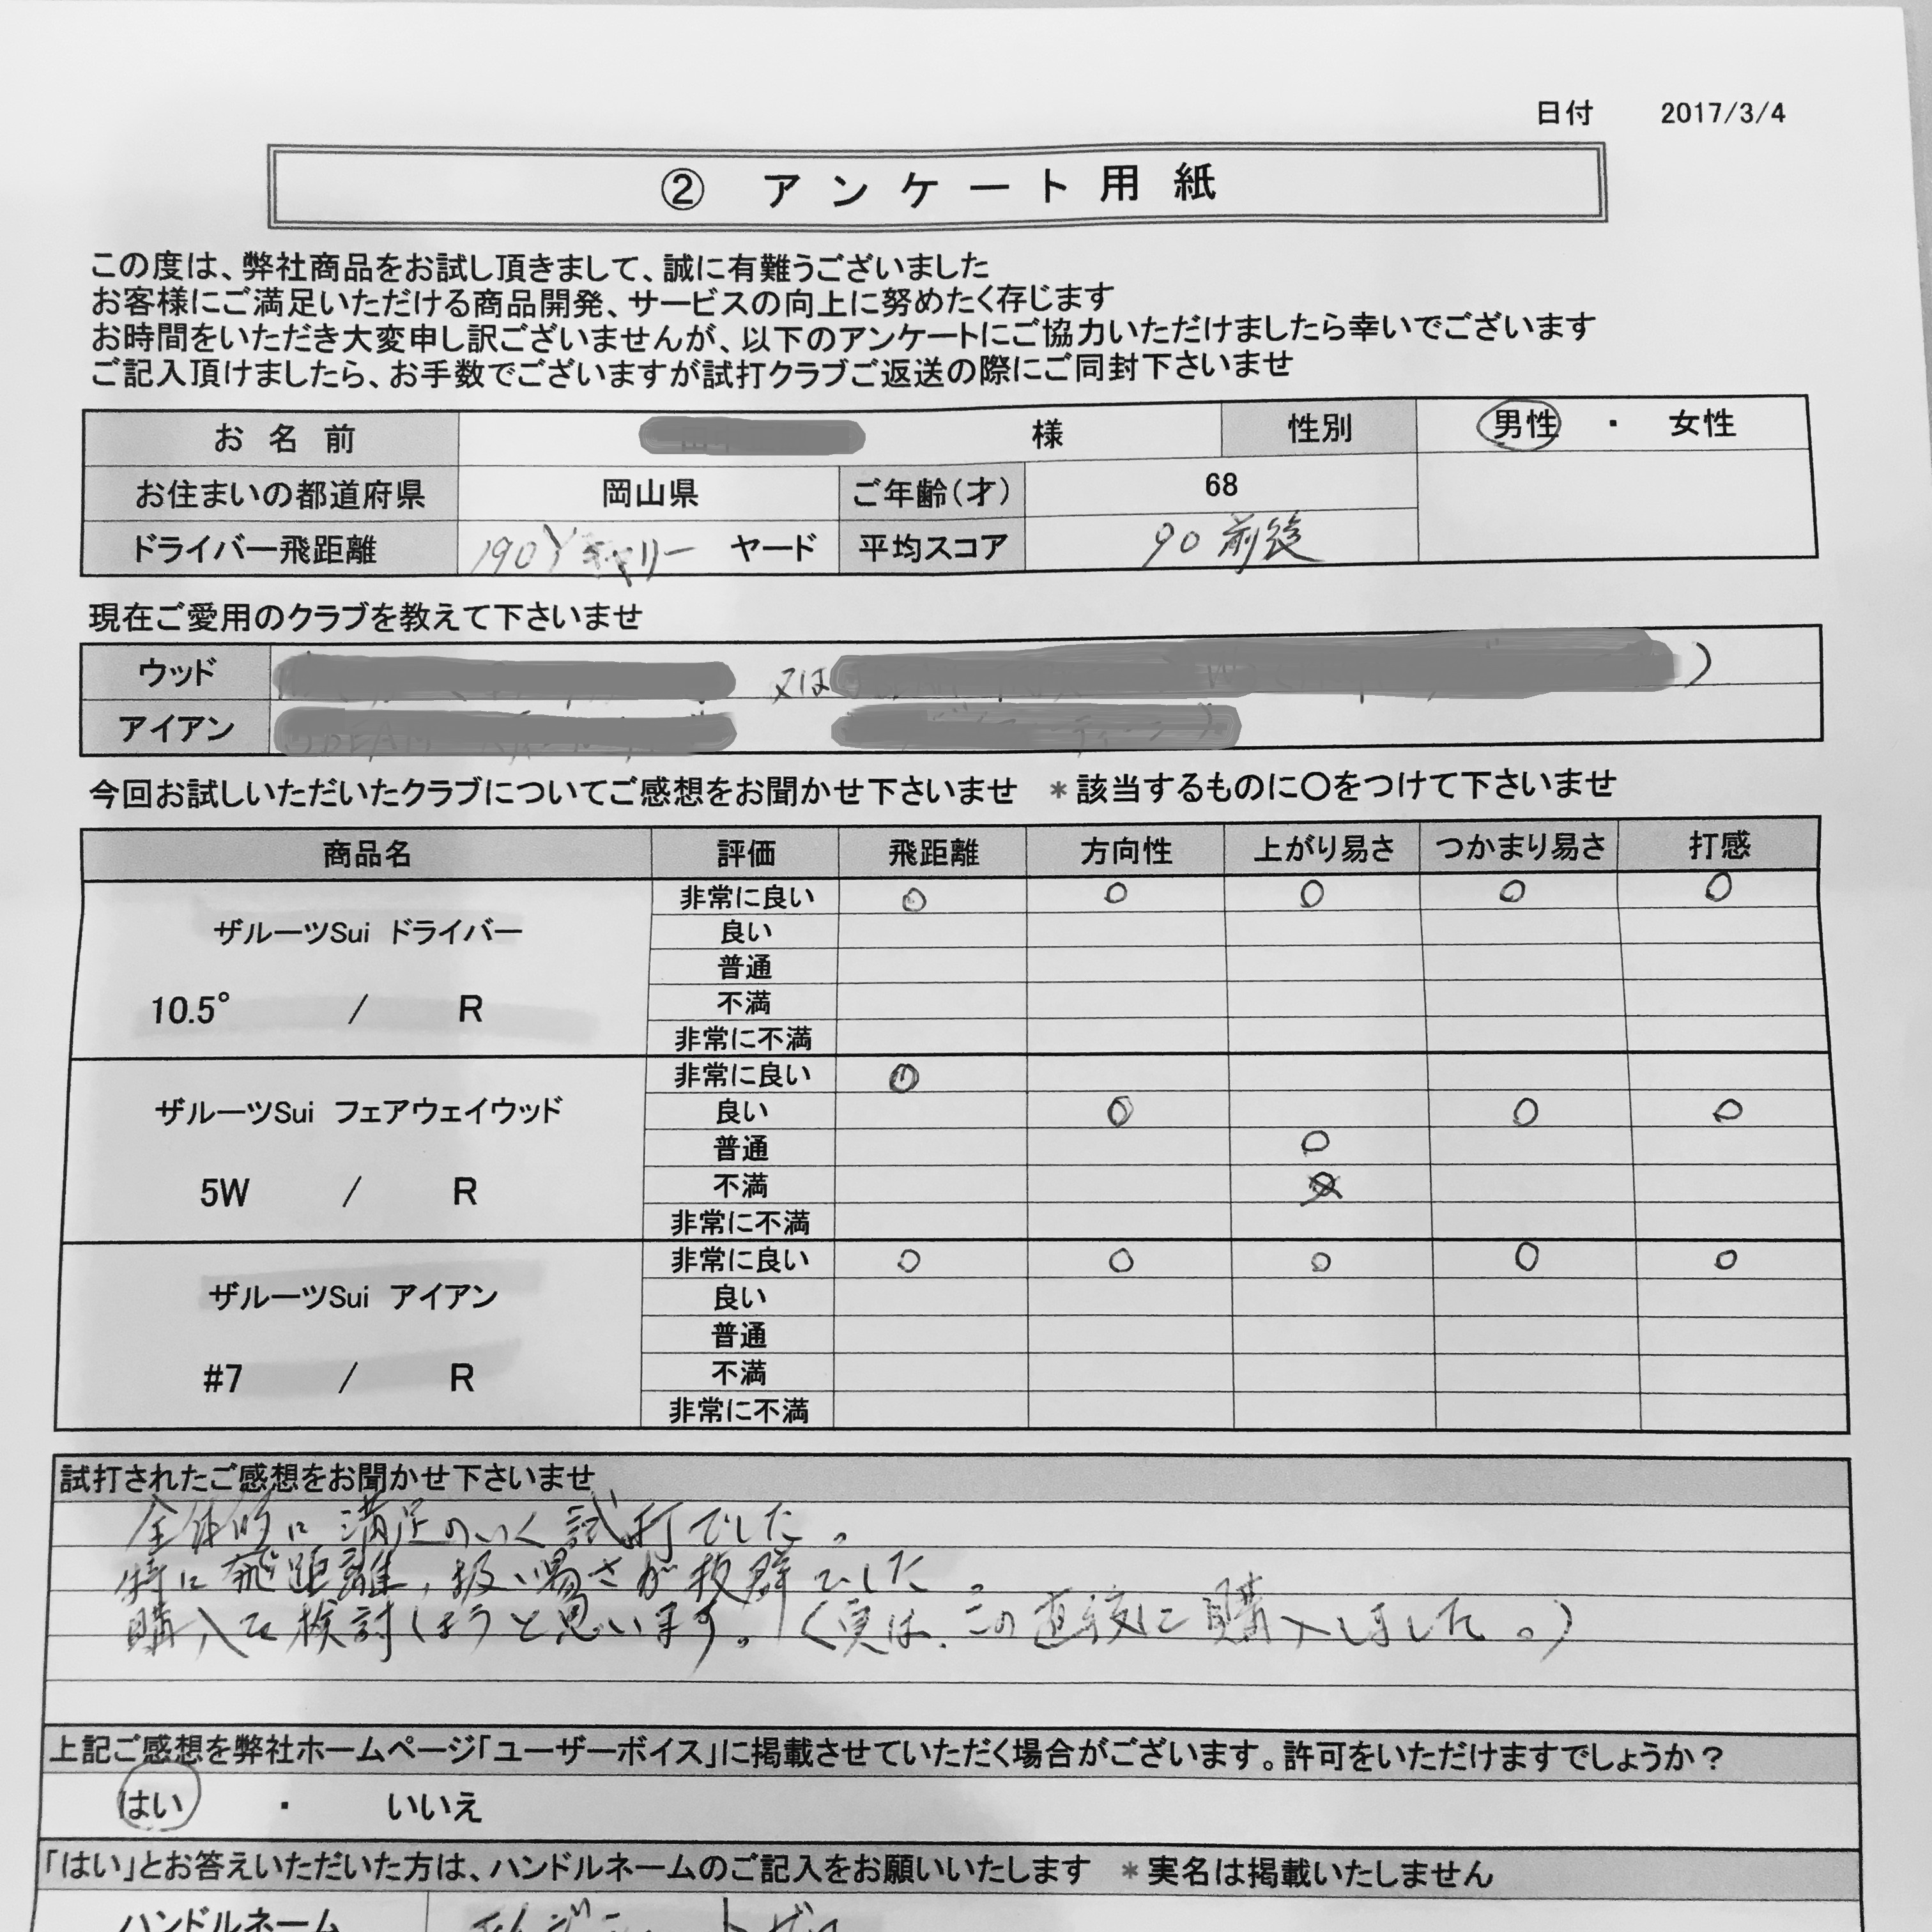 日付 2017/3/4
② アンケート用紙
この度は、弊社商品をお試し頂きまして、誠に有難うございました
お客様にご満足いただける商品開発、サービスの向上に努めたく存じます
お時間をいただき大変申し訳ございませんが、以下のアンケートにご協力いただけましたら幸いでございます
ご記入頂けましたら、お手数でございますが試打クラブご返送の際にご同封下さいませ
お名前 様 性別 男性 ・ 女性
お住まいの都道府県 岡山県 ご年齢(才) 68
ドライバー飛距離 190Y キャリー ヤード 平均スコア 90前後
現在ご愛用のクラブを教えて下さいませ
ウッド 又は )
アイアン
今回お試しいただいたクラブについてご感想をお聞かせ下さいませ *該当するものに〇をつけて下さいませ
商品名 評価 飛距離 方向性 上がり易さ つかまり易さ 打感
ザルーツSui ドライバー
10.5° / R
非常に良い ○ ○ ○ ○ ○
良い
普通
不満
非常に不満
ザルーツSui フェアウェイウッド
5W / R
非常に良い ○
良い ○ ○ ○
普通 ○
不満
非常に不満
ザルーツSui アイアン
#7 / R
非常に良い ○ ○ ○ ○ ○
良い
普通
不満
非常に不満
試打されたご感想をお聞かせ下さいませ
全体的に満足のいく試打でした。
特に飛距離,扱い易さが抜群でした
購入を検討しようと思います。(実は、この直後に購入しました。)
上記ご感想を弊社ホームページ「ユーザーボイス」に掲載させていただく場合がございます。許可をいただけますでしょうか?
はい ・ いいえ
「はい」とお答えいただいた方は、ハンドルネームのご記入をお願いいたします *実名は掲載いたしません
ハンドルネーム